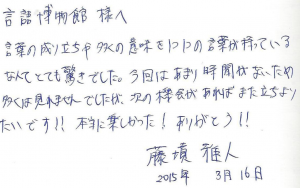 言語博物館 様へ
言葉の成り立ちや多くの意味を1つ1つの言葉が持っている
なんてとても驚きでした。3回はあまり時間がないため
多くは見れませんでしたが、次の機会があればまた立ちより
たいです!! 本当に楽しかった! ありがとう!!
藤 雅人
2015年 3月16日